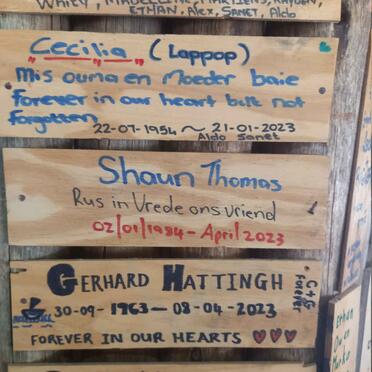 WHITEY, MADELEINE, MARTIENS, KAYDEN,
ETHAN, Alex, SANET, Aldo
Cecilia (Lappop)
Mis ouma en Moeder baie
forever in our heart but not
forgotten
22-07-1954 ~ 21-01-2023
Aldo Sanet
Shaun Thomas
Rus in Vrede ons vriend
02/01/1984 - April 2023
GERHARD HATTINGH
30-09-1963 - 08-04-2023
C+G
Forever
FOREVER IN OUR HEARTS